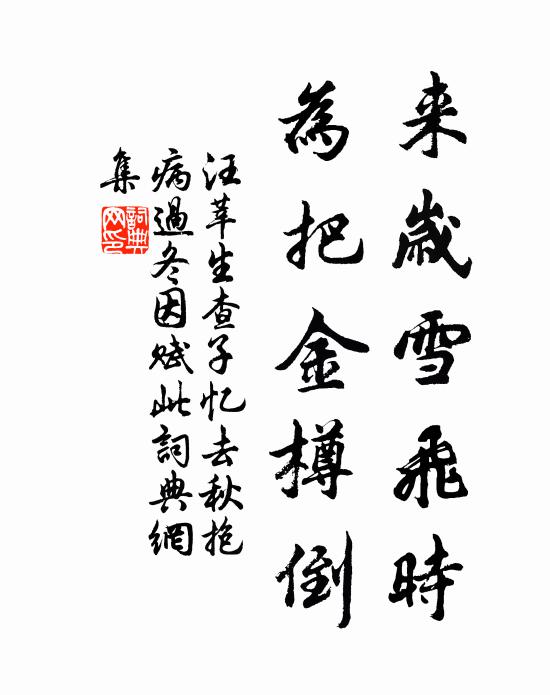 来歲雪飛時
為把金樽倒
汪莘生查子忆去秋抱
病過冬因赋此詞典網
集
詞典
网印